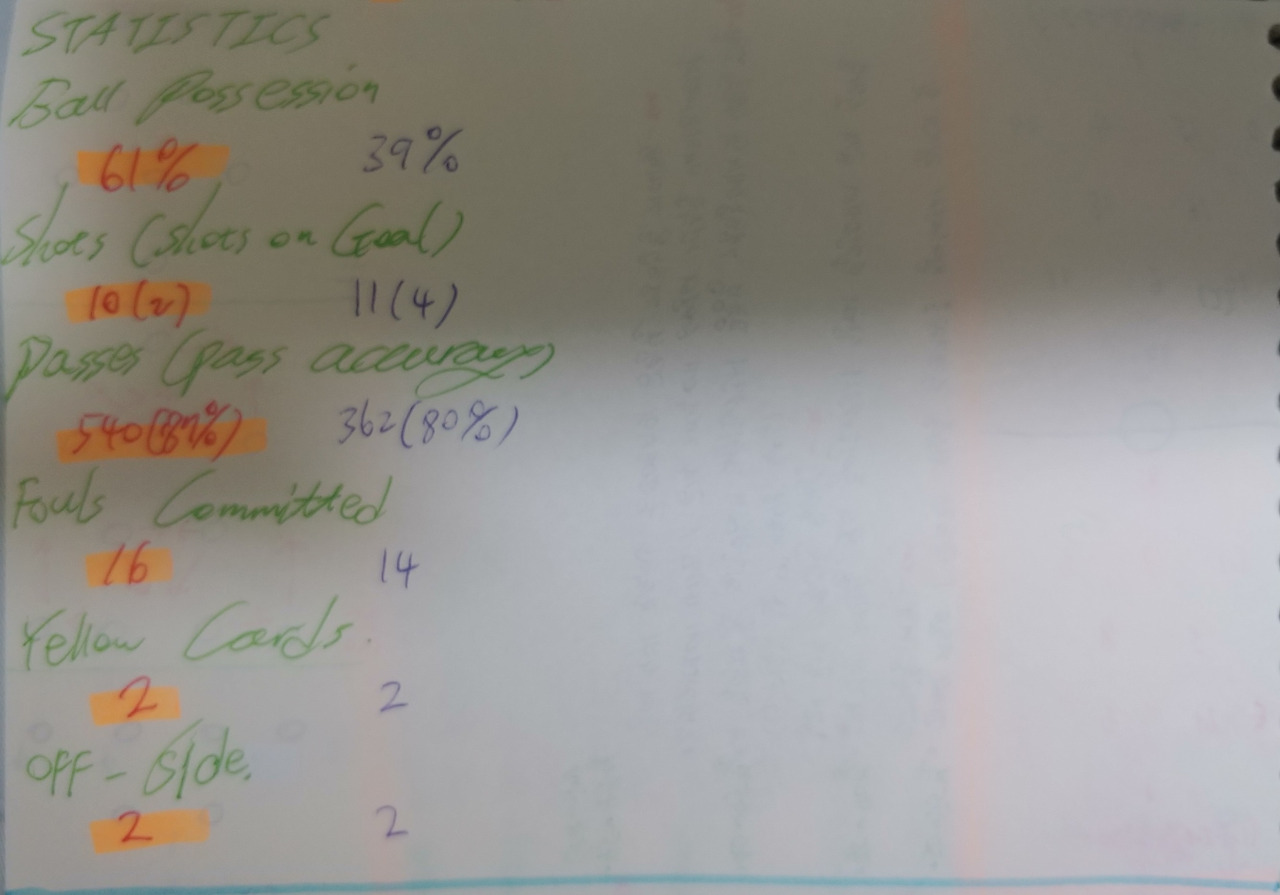 STATISTICS
Ball Possession
61% 39%
Shots (Shots on Goal)
10(2) 11(4)
Passes (pass accuracy)
540(87%) 362(80%)
Fouls Committed
16 14
Yellow Cards.
2 2
OFF-Side.
2 2